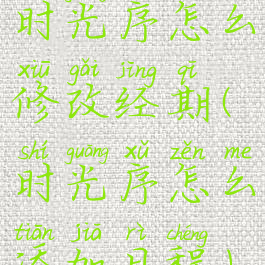 时光序怎么
xiū gǎi jīng qī
修改经期(
shí guāng xǔ zěn me
时光序怎么
tiān jiā rì chéng
添加日程)